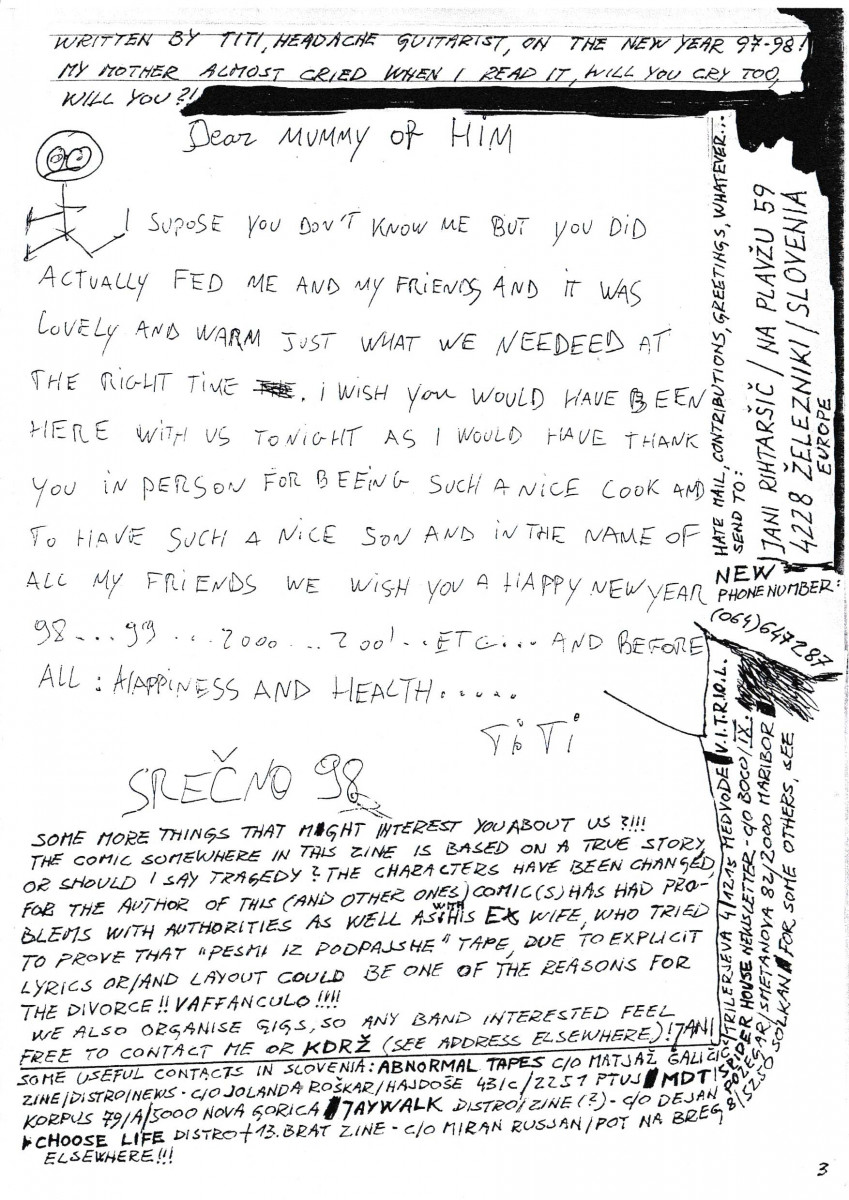 WRITTEN BY TITI, HEADACHE GUITARIST, ON THE NEW YEAR 97-98!
MY MOTHER ALMOST CRIED WHEN I READ IT, WILL YOU CRY TOO,
WILL YOU?!
Dear MUMMY OF HIM
I SUPOSE YOU DON'T KNOW ME BUT YOU DID
ACTUALLY FED ME AND MY FRIENDS AND IT WAS
LOVELY AND WARM JUST WHAT WE NEEDEED AT
THE RIGHT TIME. I WISH YOU WOULD HAVE BEEN
HERE WITH US TONIGHT AS I WOULD HAVE THANK
YOU IN PERSON FOR BEEING SUCH A NICE COOK AND
TO HAVE SUCH A NICE SON AND IN THE NAME OF
ALL MY FRIENDS WE WISH YOU A HAPPY NEW YEAR
98...99...2000...2001...ETC... AND BEFORE
ALL : HAPPINESS AND HEALTH......
TiTi
SREČNO 98
SOME MORE THINGS THAT MIGHT INTEREST YOU ABOUT US?!!!
THE COMIC SOMEWHERE IN THIS ZINE IS BASED ON A TRUE STORY,
OR SHOULD I SAY TRAGEDY? THE CHARACTERS HAVE BEEN CHANGED,
FOR THE AUTHOR OF THIS (AND OTHER ONES) COMIC(S) HAS HAD PRO-
BLEMS WITH AUTHORITIES AS WELL AS WITH HIS EX WIFE, WHO TRIED
TO PROVE THAT "PESMI IZ PODPAJSHE" TAPE, DUE TO EXPLICIT
LYRICS OR/AND LAYOUT COULD BE ONE OF THE REASONS FOR
THE DIVORCE!! VAFFANCULO!!!!
WE ALSO ORGANISE GIGS, SO ANY BAND INTERESTED FEEL
FREE TO CONTACT ME OR KDRŽ (SEE ADDRESS ELSEWHERE)! JANI
SOME USEFUL CONTACTS IN SLOVENIA: ABNORMAL TAPES C/O MATJAŽ GALIČIČ
TRILERJEVA 4/1215 MEDVODE V.I.T.R.I.O.L.
ZINE/DISTRO/NEWS - C/O JOLANDA ROŠKAR/HAJDOŠE 43/C/2251 PTUJ MDT/
SPIDER HOUSE NEWSLETTER - C/O BOCO/IX.
KORPUS 79/A/5000 NOVA GORICA JAYWALK DISTRO/ZINE(?) - C/O DEJAN
POŽEGAR/SMETANOVA 82/2000 MARIBOR
CHOOSE LIFE DISTRO + 13. BRAT ZINE - C/O MIRAN RUSJAN/POT NA BREG
8/5250 SOLKAN FOR SOME OTHERS, SEE
ELSEWHERE!!!
HATE MAIL, CONTRIBUTIONS, GREETINGS, WHATEVER...
SEND TO:
JANI RIHTARŠIČ / NA PLAVŽU 59
4228 ŽELEZNIKI / SLOVENIA
EUROPE
NEW
PHONE NUMBER:
(064)647287
3